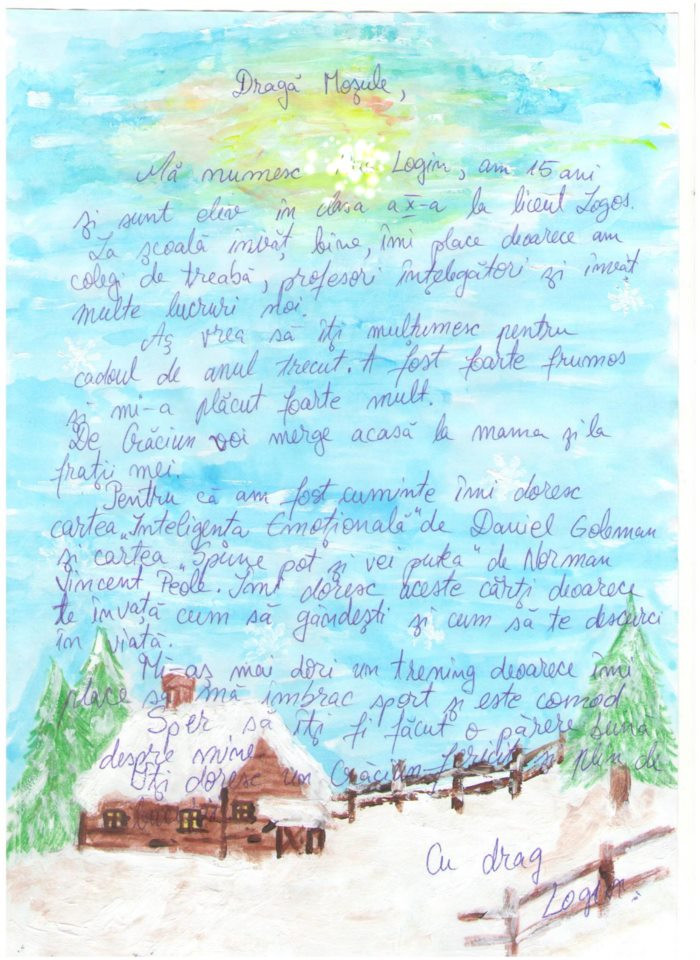 Dragă Moșule,
Mă numesc Login, am 15 ani
și sunt elevă în clasa a X-a la liceul Logos.
La școală învăț bine, îmi place deoarece am
colegi de treabă, profesori înțelegători și învăt
multe lucruri noi.
Aș vrea să îți mulțumesc pentru
cadoul de anul trecut. A fost foarte frumos
și mi-a plăcut foarte mult.
De Crăciun voi merge acasă la mama și la
frații mei.
Pentru că am fost cuminte îmi doresc
cartea „Inteligența Emoțională" de Daniel Goleman
și cartea „Spune pot și vei putea" de Norman
Vincent Peole. Îmi doresc aceste cărți deoarece
te învață cum să gândești și cum să te descurci
în viață.
Mi-aș mai dori un trening deoarece îmi
place să mă îmbrac sport și este comod
Sper să îți fi făcut o părere bună
despre mine.
Îți doresc un Crăciun fericit și plin de
Cu drag
Login.